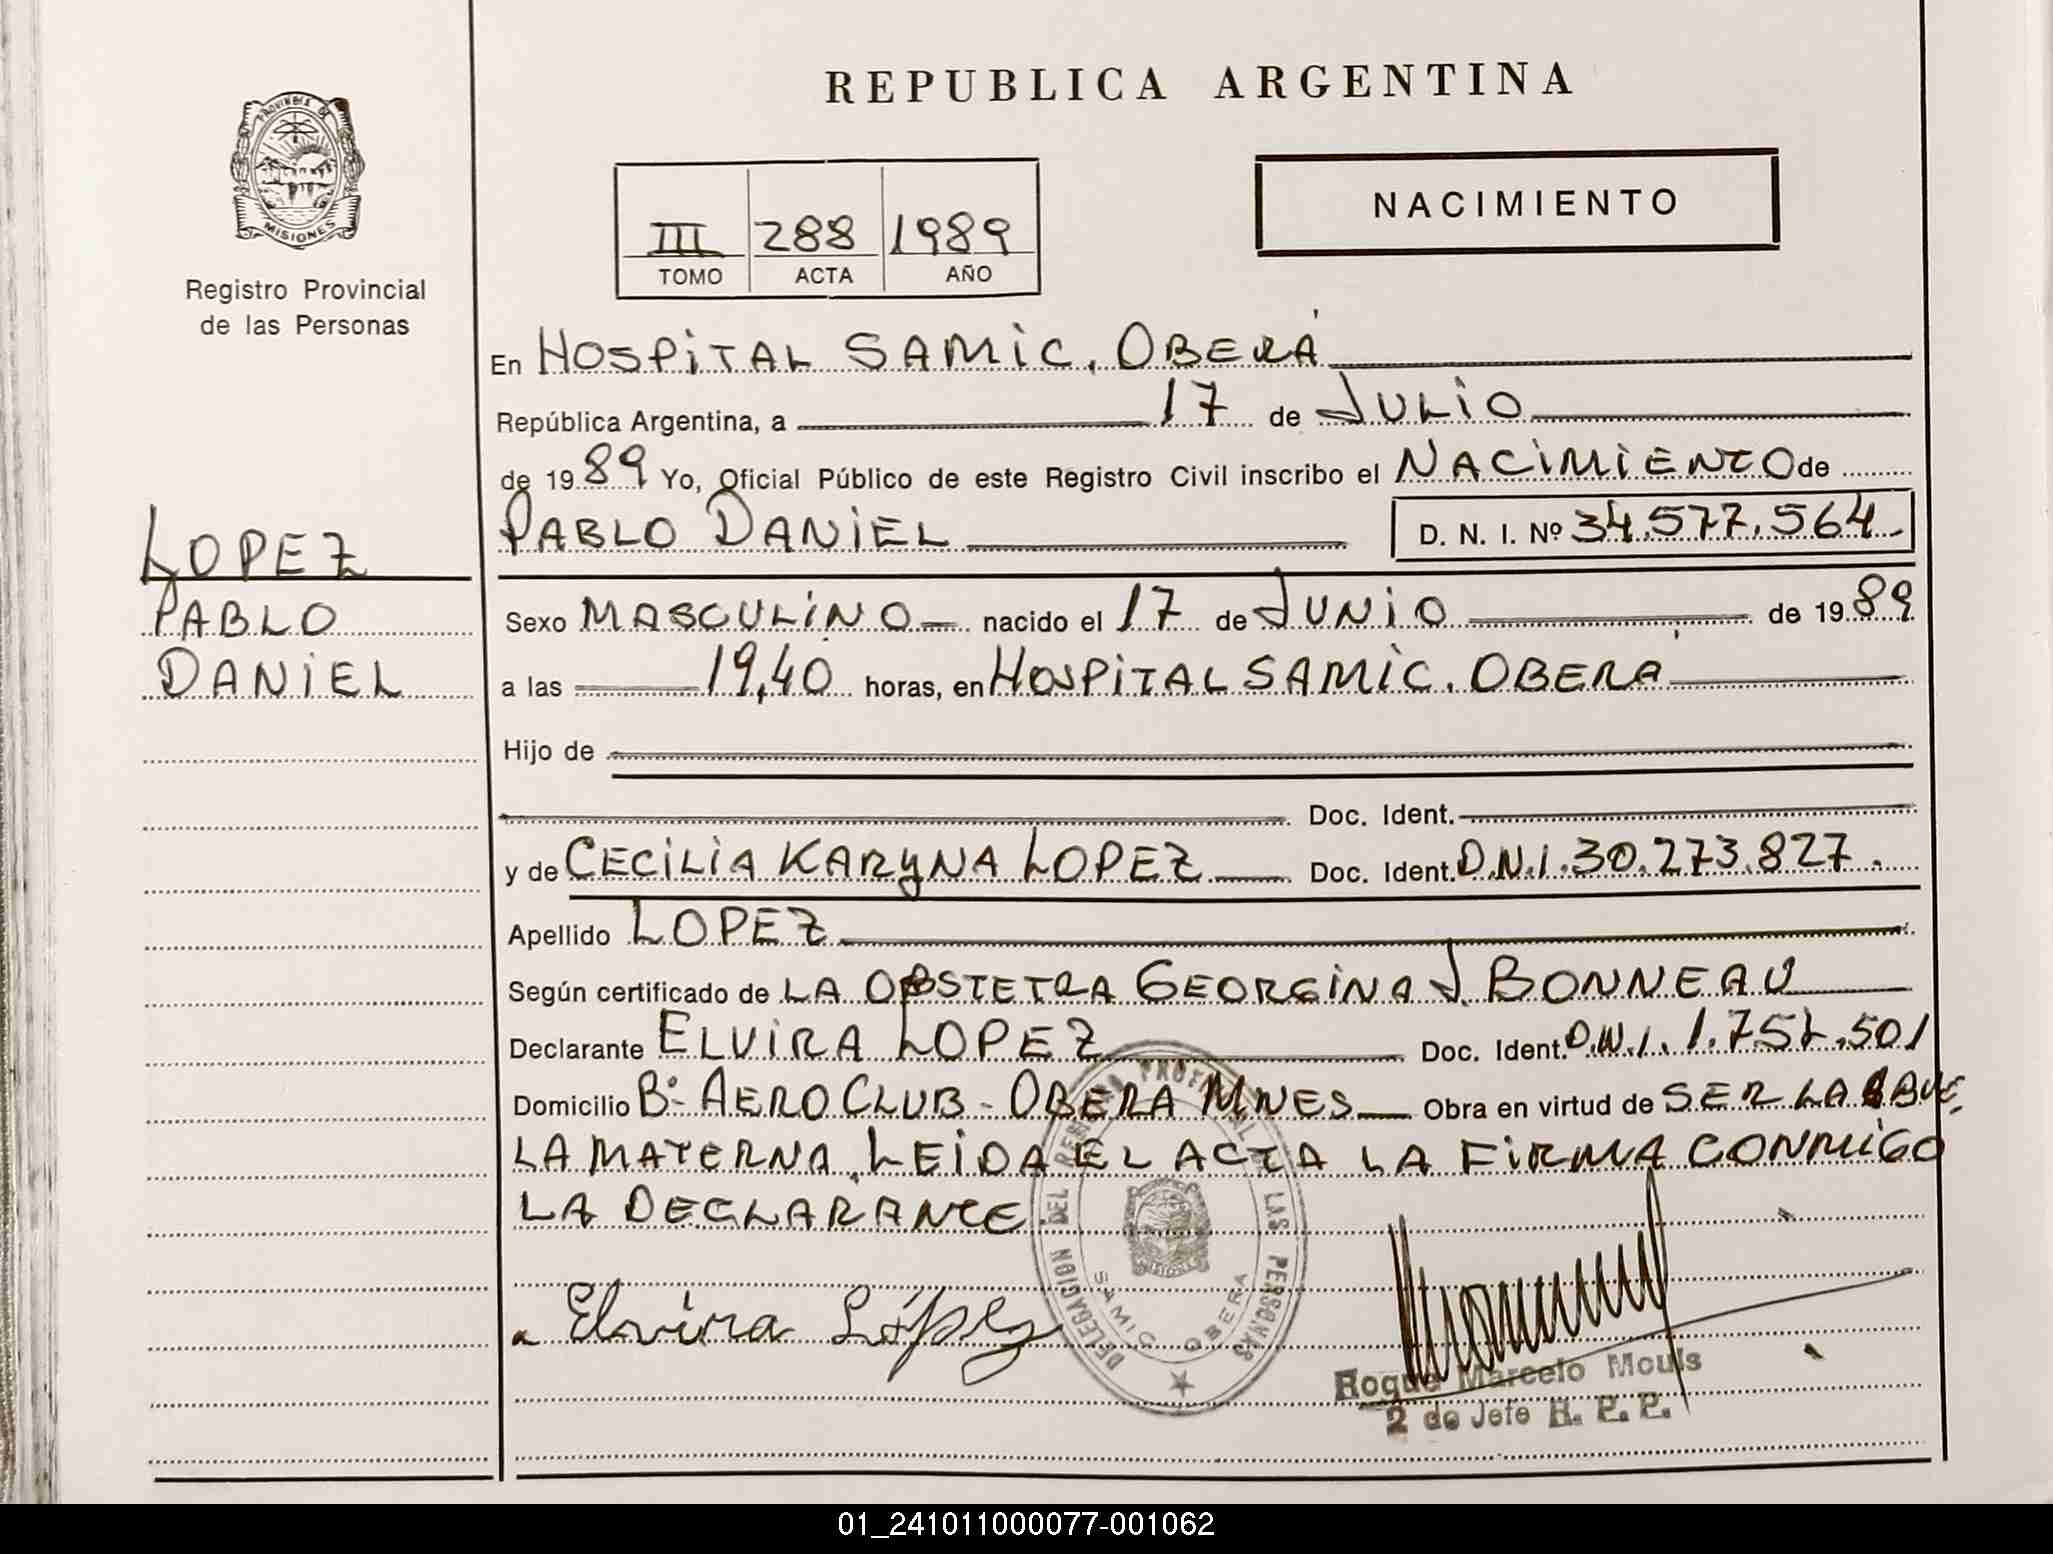 REPUBLICA ARGENTINA
PROVINCIA DE MISIONES
Registro Provincial
de las Personas
III 288 1989
TOMO ACTA AÑO
NACIMIENTO
En HOSPITAL SAMIC. OBERÁ
República Argentina, a 17 de JULIO
de 1989 Yo, Oficial Público de este Registro Civil inscribo el NACIMIENTO de
PABLO DANIEL D. N. I. Nº 34.577.564
LOPEZ
PABLO
DANIEL
Sexo MASCULINO nacido el 17 de JUNIO de 1989
a las 19,40 horas, en HOSPITAL SAMIC. OBERÁ
Hijo de
Doc. Ident.
y de CECILIA KARYNA LOPEZ Doc. Ident. D.N.I. 30.273.827.
Apellido LOPEZ
Según certificado de LA OBSTETRA GEORGINA J. BONNEAU
Declarante ELVIRA LOPEZ Doc. Ident. D.N.I. 1.757.501
Domicilio Bº AERO CLUB - OBERA MNES Obra en virtud de SER LA ABUE
LA MATERNA. LEIDA EL ACTA LA FIRMA CONMIGO
LA DECLARANTE
Elvira López
DELEGACION DEL REGISTRO PROVINCIAL DE LAS PERSONAS
SAMIC OBERA
MISIONES
Roque Marcelo Mouls
2 do Jefe R. P. P.
01_241011000077-001062